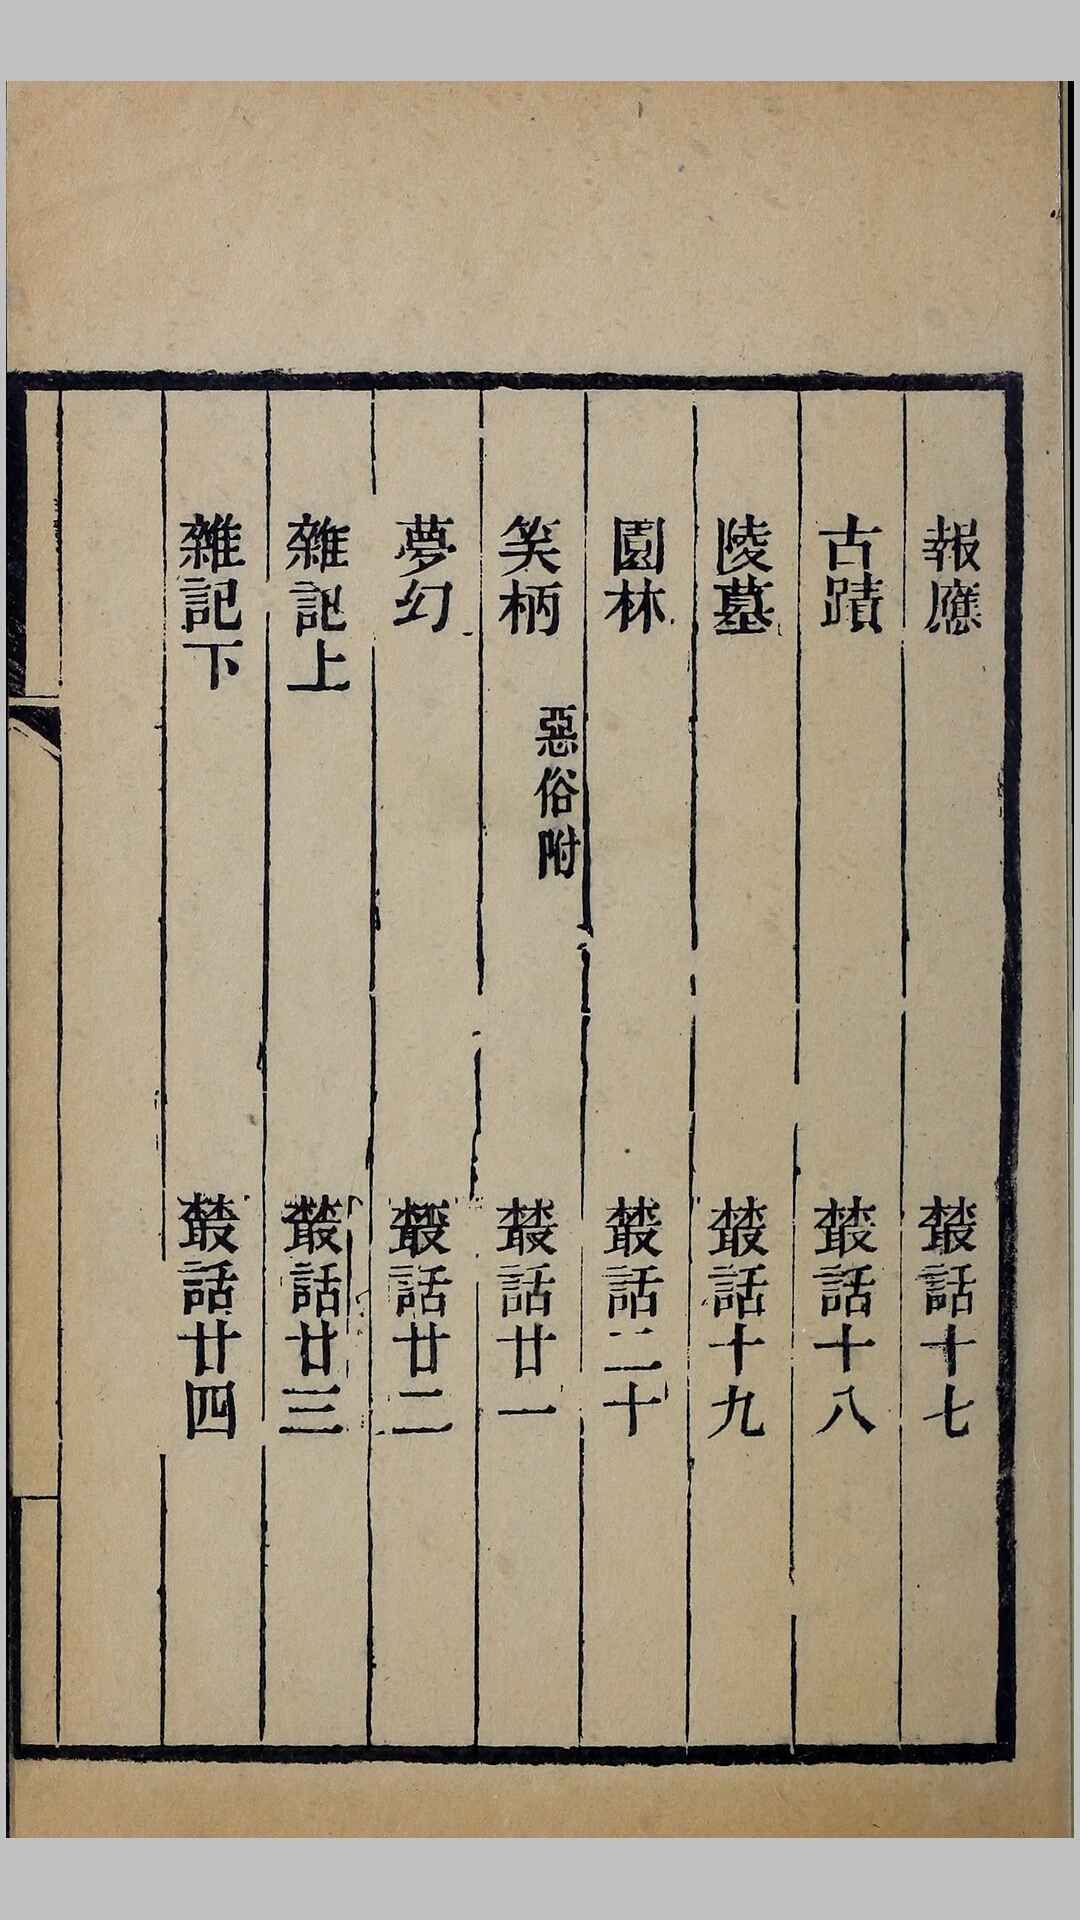 報應　叢話十七
古蹟　叢話十八
陵墓　叢話十九
園林　叢話二十
笑柄　惡俗附　叢話廿一
夢幻　叢話廿二
雜記上　叢話廿三
雜記下　叢話廿四